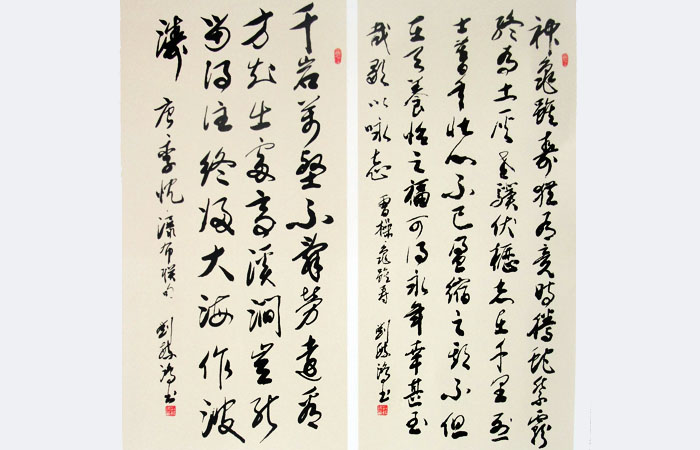 神龜雖壽猶有竟時騰蛇乘霧
終為土灰老驥伏櫪志在千里烈
士暮年壯心不已盈縮之期不但
在天養怡之福可得永年幸甚至
哉歌以咏志 曹操龜雖壽 劉鴻書
千岩萬壑不辭勞遠看
方知出處高溪澗豈能
留得住終歸大海作波
濤 唐李忱瀑布聯句 劉鴻書